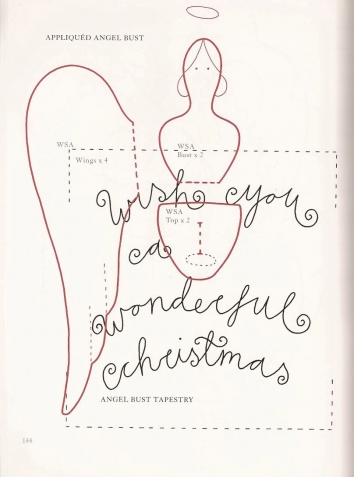 APPLIQUÉD ANGEL BUST
WSA
Wings x 4
WSA
Bust x 2
Wish you
WSA
Top x 2
a
wonderful
christmas
ANGEL BUST TAPESTRY
144